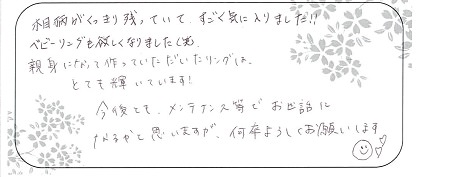 木目柄がくっきり残っていて、すごく気に入りました!!
ベビーリングも欲しくなりました(笑
親身になって作っていただいたリングは、
とても輝いています!
今後とも、メンテナンス等でお世話に
なるかと思いますが、何卒よろしくお願いします